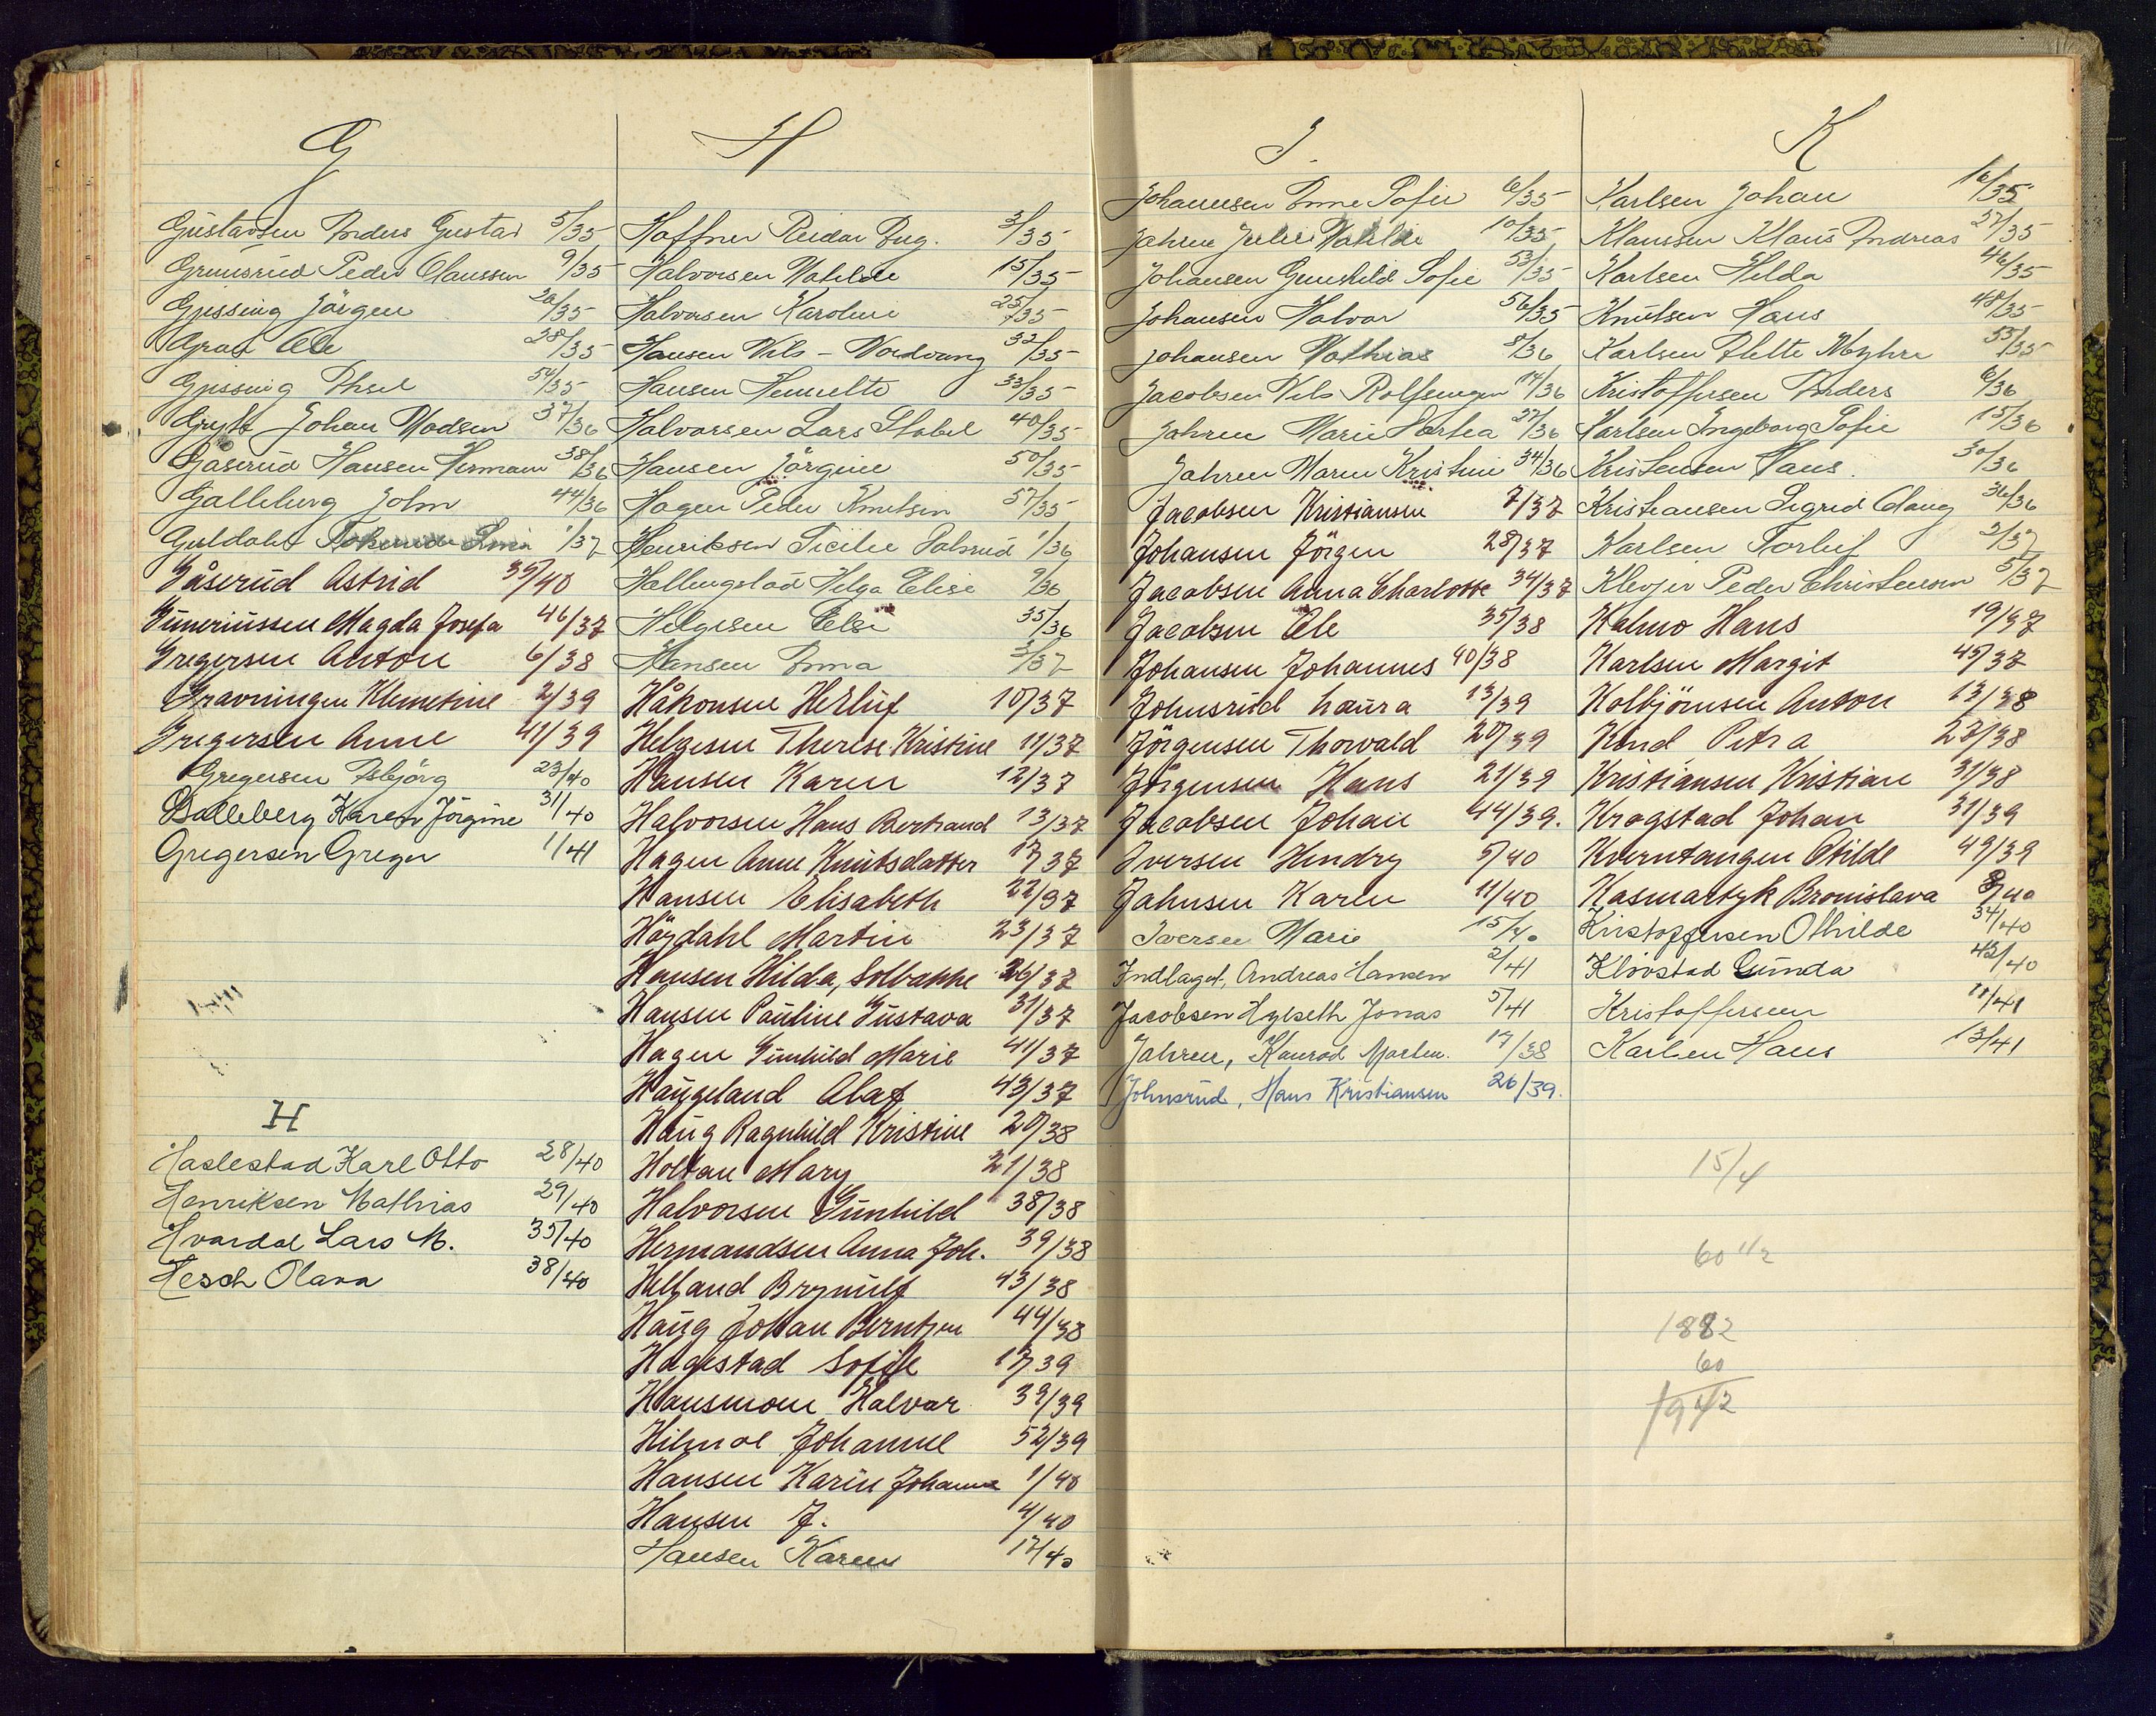 G
Gustavsen Anders Gustav 5/35
Grimsrud Peder Claussen 9/35
Gjessing Jörgen 26/35
Grav Ole 28/35
Gjessing Thsel 54/35
Grytt Johan Madsen 37/36
Gåserud Hansen Hermann 38/36
Galleberg John 44/36
Guldahl 1/37
Gåserud Astrid 39/40
Guneriussen Magda Josefa 46/37
Gregersen Anton 6/38
Gravningen Klemetine 2/39
Gregersen Anne 41/39
Gregersen Asbjörg 23/40
Galleberg Karen Jörgine 31/40
Gregersen Greger 1/41
H
Haslestad Karl Otto 28/40
Henriksen Mathias 29/40
Hvardal Lars M. 35/40
Hesch Olava 38/40
H
Haffner Reidar Aug. 3/35
Halvorsen Matilde 15/35
Halvorsen Karoline 25/35
Hansen Nils - Nordvang 32/35
Hansen Hennelte 33/35
Halvorsen Lars Stabel 40/35
Hansen Jörgine 50/35
Hagen Peder Knutsen 57/35
Henriksen Sicilie Solsrud 1/36
Hallingstad Helga Elise 9/36
Helgesen Else 35/36
Hansen Anna 3/37
Håkonsen Herluf 10/37
Helgesen Therese Kristine 11/37
Hansen Karen 12/37
Halvorsen Hans Bertrand 13/37
Hagen Anne Knutsdatter 17/37
Hansen Elisabeth 22/37
Höydahl Martin 23/37
Hansen Hilda, Solbakke 26/37
Hansen Pauline Gustava 31/37
Hagen Gunhild Marie 41/37
Haugeland Olaf 43/37
Haug Ragnhild Kristine 20/38
Holtan Mary 21/38
Halvorsen Gunhild 38/38
Hermandsen Anna Joh. 39/38
Helland Brynulf 43/38
Haug Johan Berntzen 44/38
Hagestad Sofie 17/39
Hansmoen Halvar 39/39
Hilmoe Johanne 52/39
Hansen Karin Johanne 1/40
Hansen J. 4/40
Hansen Karen 17/40
J.
Johannesen Anne Sofie 6/35
Jahren Julie Matilde 10/35
Johansen Gunhild Sofie 53/35
Johansen Halvor 56/35
Johansen Mathias 8/36
Jacobsen Nils Rolfsengen 14/36
Jahren Marie Hertea 27/36
Jahren Maren Kristine 34/36
Jacobsen Kristiansen 7/37
Johansen Jörgen 28/37
Jacobsen Anna Charlotte 34/37
Jacobsen Ole 35/38
Johansen Johannes 40/38
Johnsrud Laura 13/39
Jörgensen Thorvald 20/39
Jörgensen Hans 21/39
Jacobsen Johan 44/39.
Iversen Hendry 5/40
Jahnsen Karen 11/40
Iversen Marie 15/40
Indlaget, Andreas Hansen 2/41
Jacobsen Hylseth Jonas 5/41
Jahren, Konrad Marten. 17/38
Johnsrud, Hans Kristiansen 26/39.
K
Karlsen Johan 16/35
Klaussen Klaus Andreas 27/35
Karlsen Hilda 46/35
Knutsen Hans 48/35
Karlsen Alette Myhre 55/35
Kristoffersen Anders 6/36
Karlsen Ingeborg Sofie 15/36
Kristensen Hans. 30/36
Kristiansen Sigrid Olaug 36/36
Karlsen Torleif 2/37
Klevjer Peder Christensen 5/37
Kalmo Hans 19/37
Karlsen Margit 45/37
Kolbjörnsen Anton 13/38
Kind Petra 27/38
Kristiansen Kristian 31/38
Krogstad Johan 31/39
Kverntangen Otilde 49/39
Kasmartyk Bronislava 8/40
Kristoffersen Othilde 34/40
Klövstad Gunda 42/40
Kristoffersen 11/41
Karlsen Hans 13/41
15/4
60 1/2
1882
60
1942